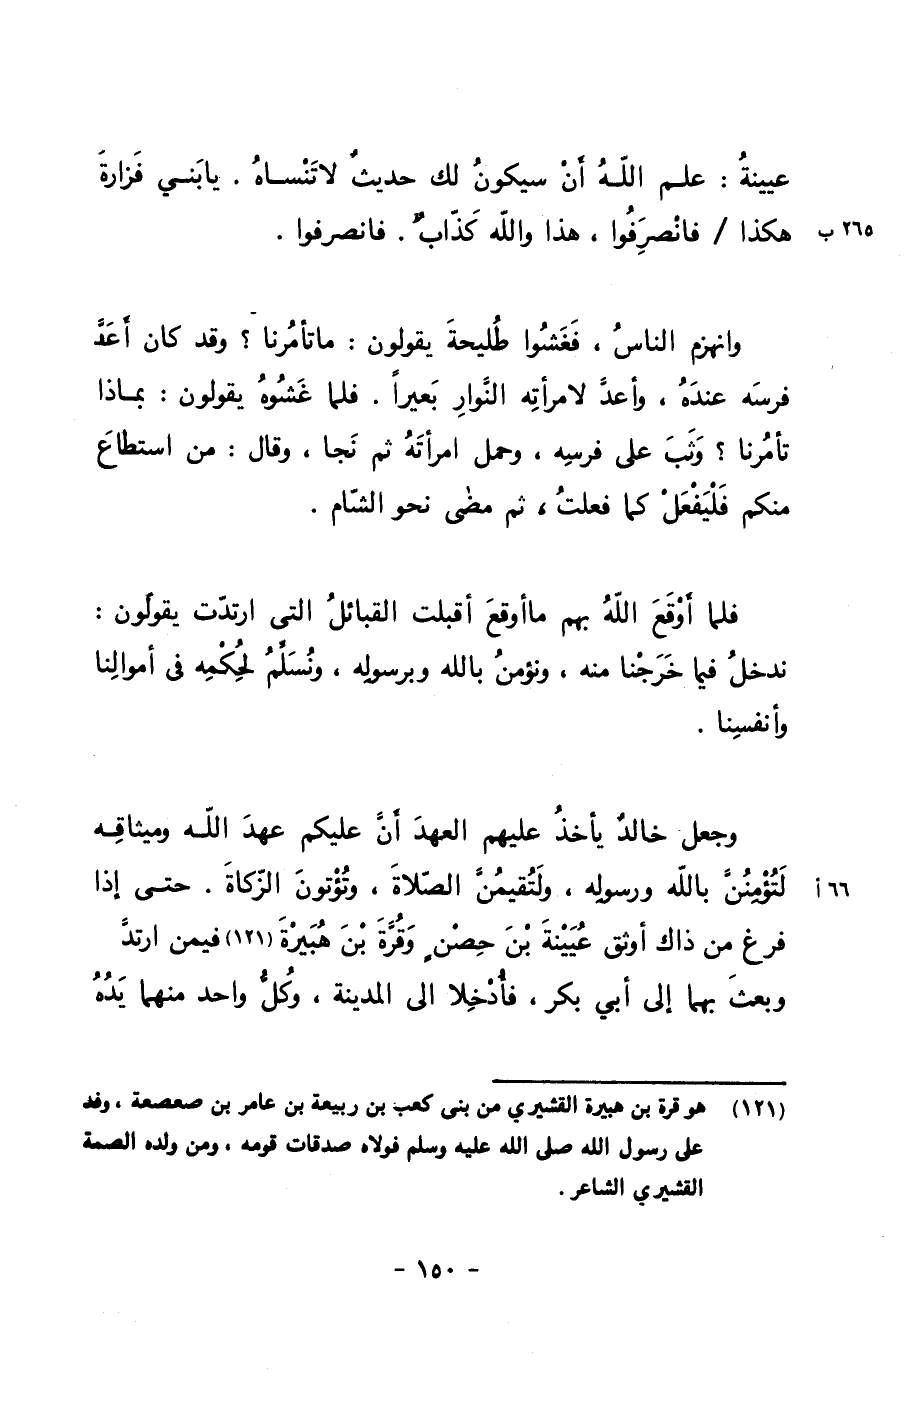 عيينةُ : علم اللّهُ أَنْ سيكونُ لك حديثٌ لاتَنْساهُ . يابَني فَزارةَ
٢٦٥ ب هكذا / فانْصرِفُوا ، هذا واللّه كَذّابٌ . فانصرفوا .
وانهزم الناسُ ، فَغَشُوا طُليحةَ يقولون : ماتأمُرنا ؟ وقد كان أَعَدَّ
فرسَه عندَهُ ، وأعدَّ لامرأتِه النَّوارِ بَعيراً . فلما غَشُوهُ يقولون : بماذا
تأمُرنا ؟ وَثَبَ على فرسِه ، وحمل امرأتَهُ ثم نَجا ، وقال : من استطاعَ
منكم فَلْيَفْعَلْ كما فعلتُ ، ثم مضى نحو الشّام .
فلما أَوْقَعَ اللّهُ بهم ماأوقعَ أقبلت القبائلُ التى ارتدّت يقولُون :
ندخلُ فيما خَرَجْنا منه ، ونؤمنُ بالله وبرسولِه ، ونُسَلِّمُ لحُكْمِه فى أموالِنا
وأنفسِنا .
وجعل خالدٌ يأخذُ عليهم العهدَ أَنَّ عليكم عهدَ اللّه وميثاقِه
٦٦ أ لَتُؤْمِنُنَّ باللّه ورسولِه ، ولَتُقيمُنَّ الصّلاةَ ، وتُؤْتونَ الزّكاةَ . حتى إذا
فرغ من ذاك أوثق عُيَيْنةَ بْنَ حِصْنٍ وَقُرَّةَ بْنَ هُبَيرْةَ (١٢١) فيمن ارتدَّ
وبعثَ بهما إلى أبي بكر ، فأُدْخِلا الى المدينة ، وكُلُّ واحد منهما يَدُهُ
(١٢١) هو قرة بن هبيرة القشيري من بنى كعب بن ربيعة بن عامر بن صعصعة ، وفد
على رسول الله صلى الله عليه وسلم فولاه صدقات قومه ، ومن ولده الصمة
القشيري الشاعر .
- ١٥٠ -